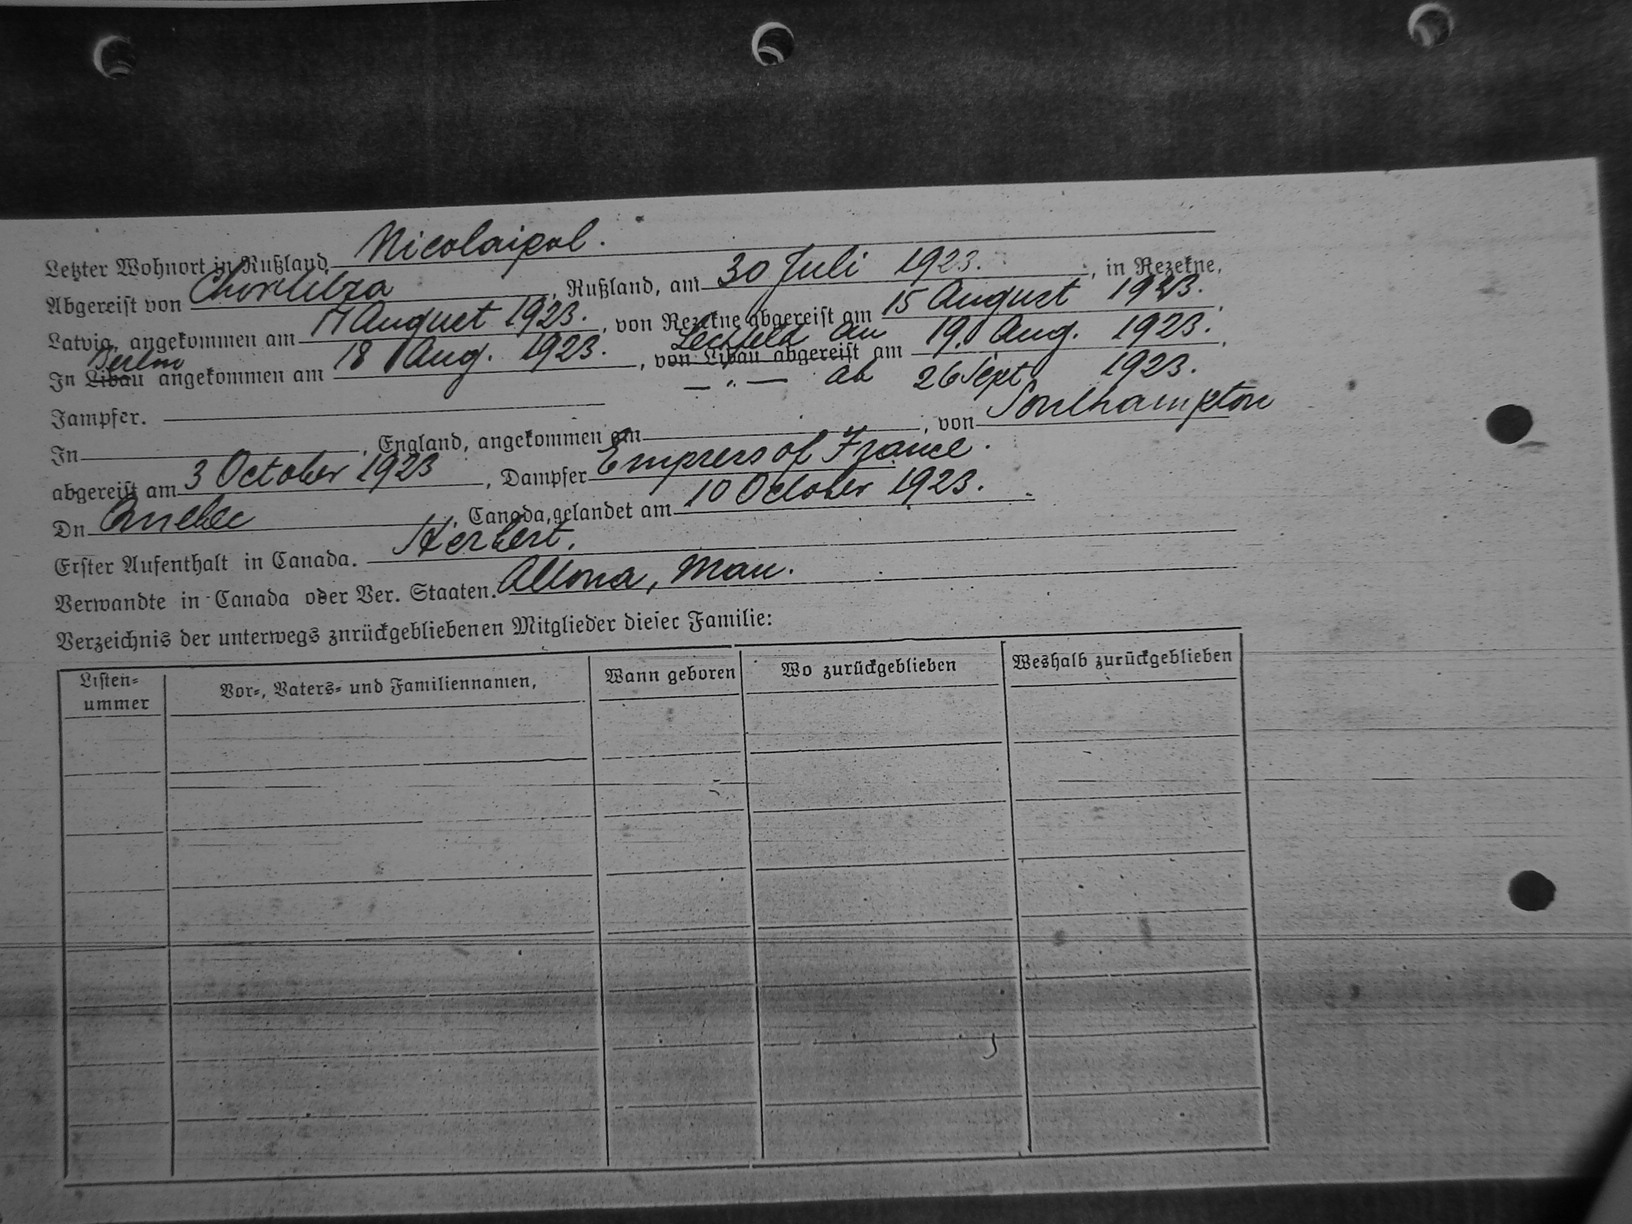 Letzter Wohnort in Rußland Nicolaipol.
Abgereist von Chortitza, Rußland, am 30 Juli 1923., in Rezekne,
Latvia, angekommen am 11 August 1923., von Rezekne abgereist am 15 August 1923.
In Libau Berlin angekommen am 18 Aug. 1923., von Libau abgereist am Lechfeld an 19. Aug. 1923.
— " — ab 26 Sept 1923.
Jampfer.
In , England, angekommen am , von Southampton
abgereist am 3 October 1923, Dampfer Empress of France.
Dn Quebec, Canada, gelandet am 10 October 1923.
Erster Aufenthalt in Canada. Herbert.
Verwandte in Canada oder Ver. Staaten. Altona, Man.
Verzeichnis der unterwegs znrückgebliebenen Mitglieder dieser Familie:
Listen-
ummer
Vor-, Vaters- und Familiennamen,
Wann geboren
Wo zurückgeblieben
Weshalb zurückgeblieben